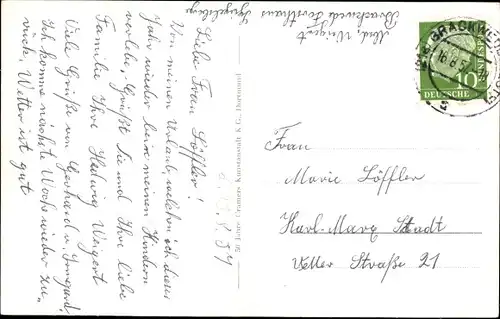 Abs. Weigert
Brackwede Forsthaus
Liebe Frau Löffler!
Von meinen Urlaub, welchen ich dieses
Jahr wieder bei meinen Kindern
verlebe, Grüßt Sie und Ihre liebe
Familie Ihre Hedwig Weigert
Viele Grüße von Gerhard u. Irmgard.
Ich komme nächste Woche wieder zu-
rück, Wetter ist gut
50 Jahre Cramers Kunstanstalt K G., Dortmund
BRACKWEDE
10
DEUTSCHE
BUNDESPOST
Frau
Marie Löffler
Karl-Marx Stadt
Vetter Straße 21